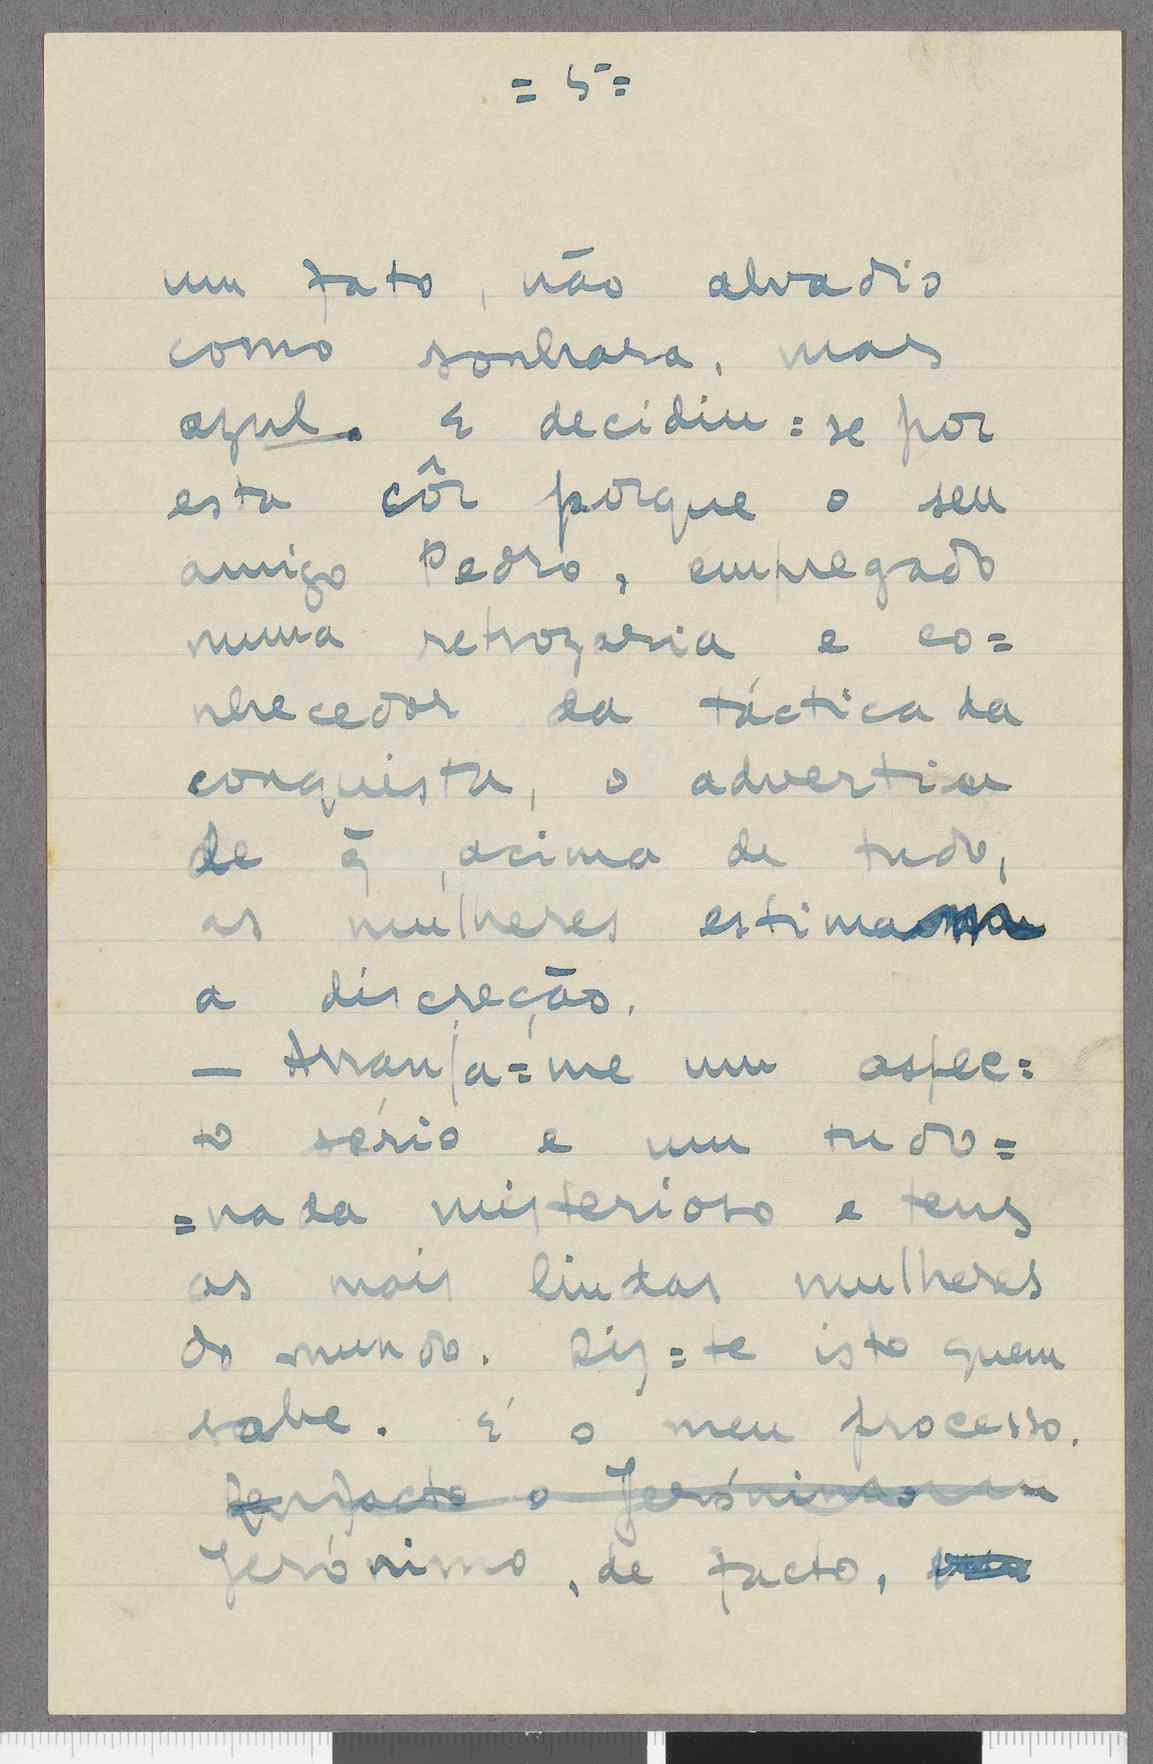 = 5 =
um fato, não alvadio
como sonhara, mas
azul. E decidiu=se por
esta côr porque o seu
amigo Pedro, empregado
numa retrozaria e co=
nhecedor da táctica da
conquista, o advertiu
de q̃, acima de tudo,
as mulheres estimam
a discreção.
— Arranja=me um aspec=
to sério e um tudo=
=nada misterioso e tens
as mais lindas mulheres
do mundo. Diz=te isto quem
sabe. É o meu processo.
facto o Jerónimo
Jerónimo, de facto,